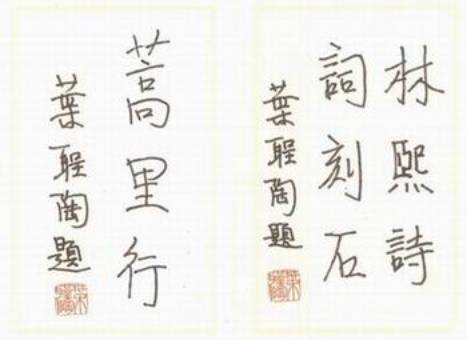 林熙詩
詞刻石
葉聖陶題
蒿里行
葉聖陶題